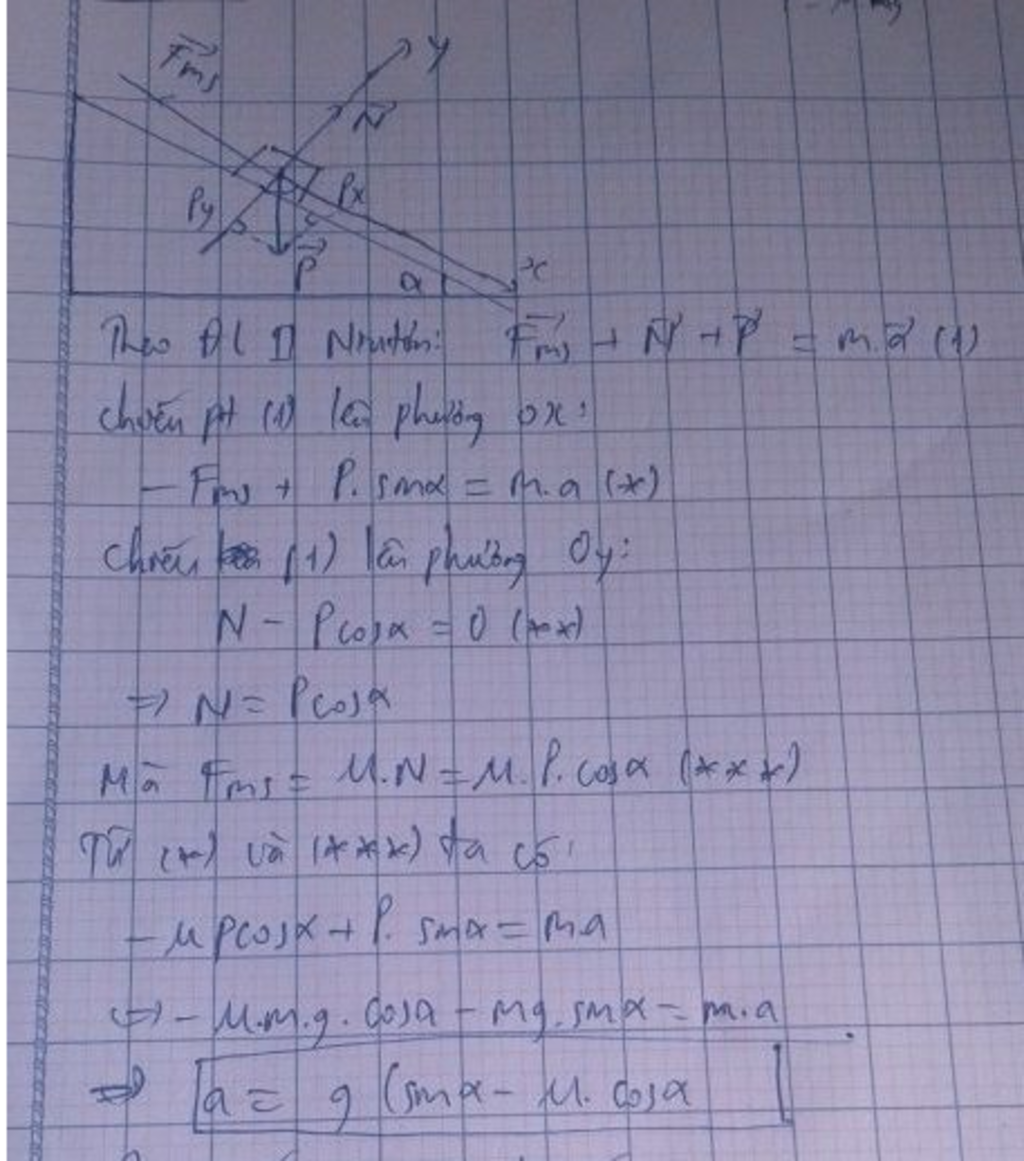 Fms
y
N
Px
Py
P
α
x
Theo ĐL II Niutơn: Fms + N + P = m.a (1)
chiếu pt (1) lên phương ox:
- Fms + P. sinα = m.a (*)
chiếu (1) lên phương Oy:
N - Pcosα = 0 (**)
=> N = Pcosα
Mà Fms = μ.N = μ.P.cosα (***)
Từ (*) và (***) ta có:
- μPcosα + P. sinα = ma
<=> - μ.m.g.cosα - mg.sinα = m.a
=> a = g (sinα - μ.cosα